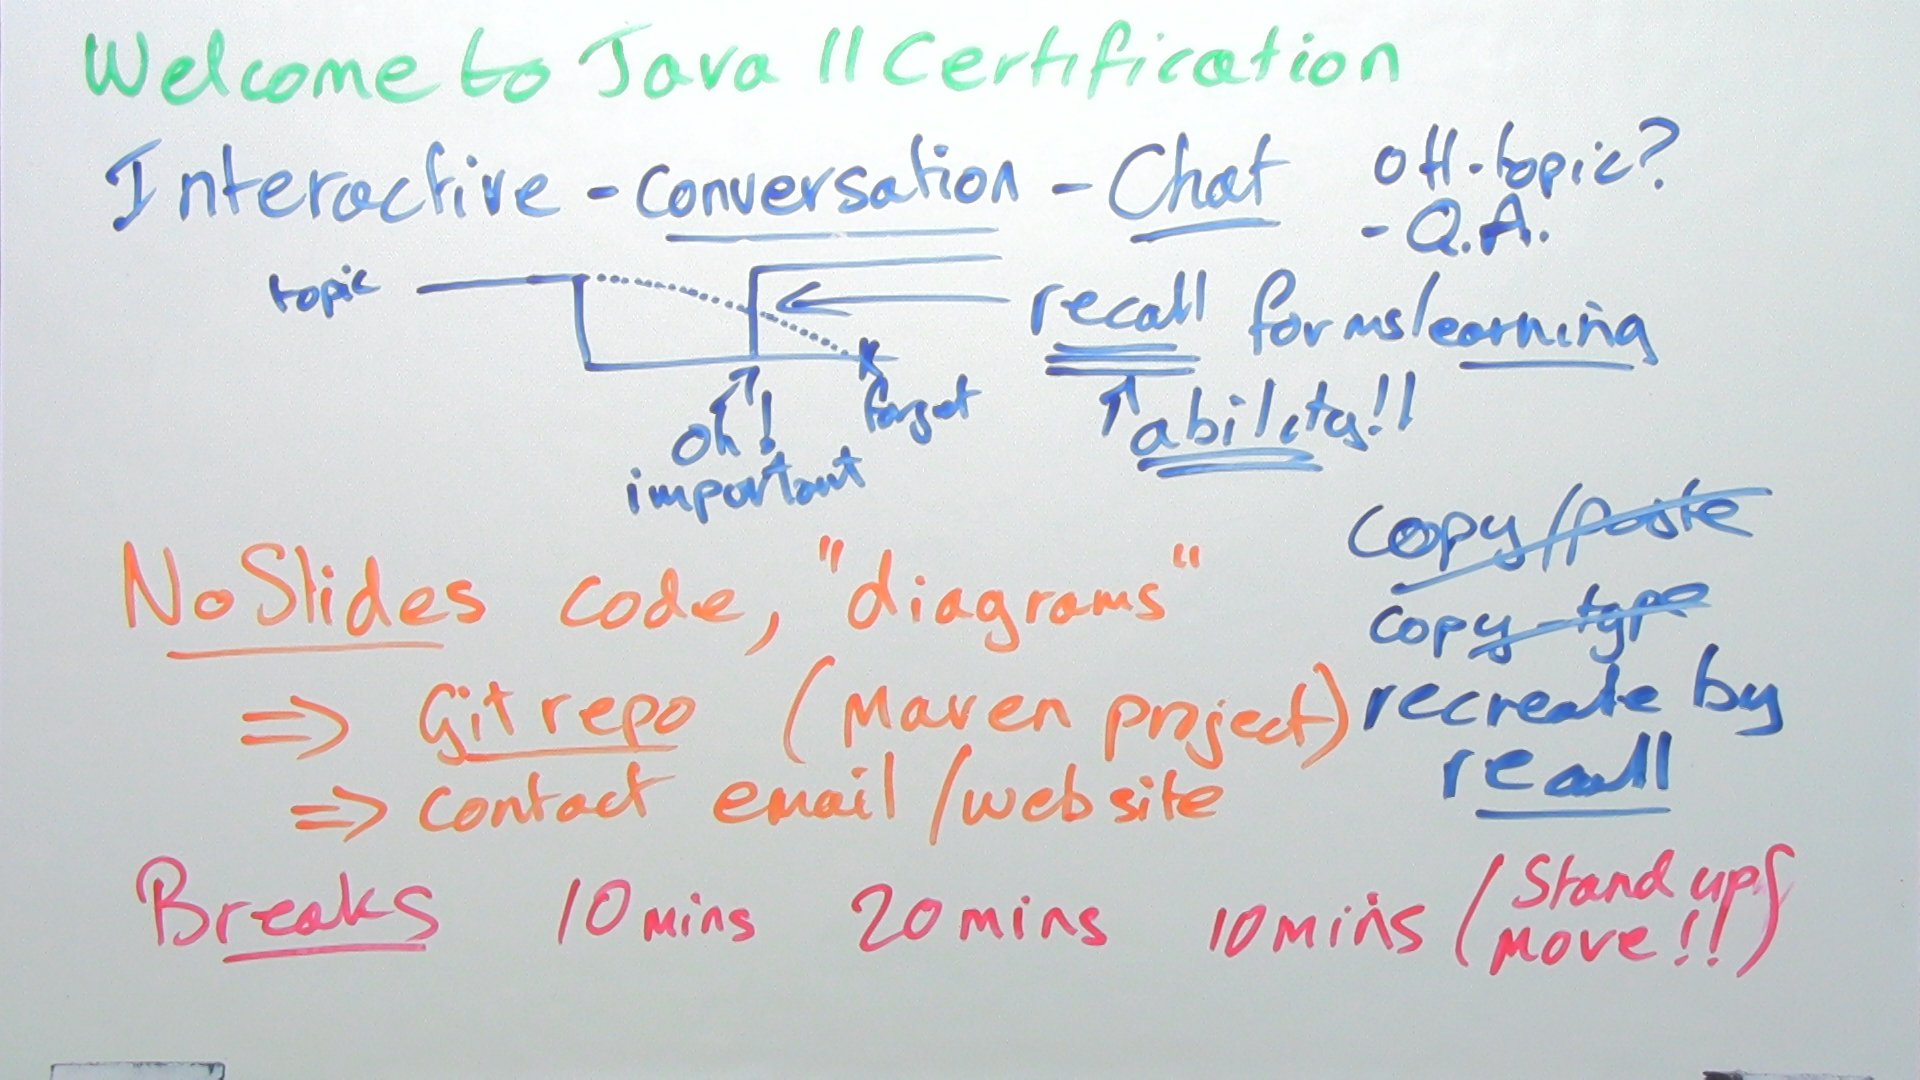 Welcome to Java 11 Certification
Interactive - conversation - Chat
off-topic?
- Q.A.
topic
recall forms learning
ability!!
forget
oh!
important
copy/paste
copy-type
recreate by
recall
No Slides code, "diagrams"
=> Git repo (Maven project)
=> contact email / website
Breaks 10 mins 20 mins 10 mins (Stand up &
move!!)